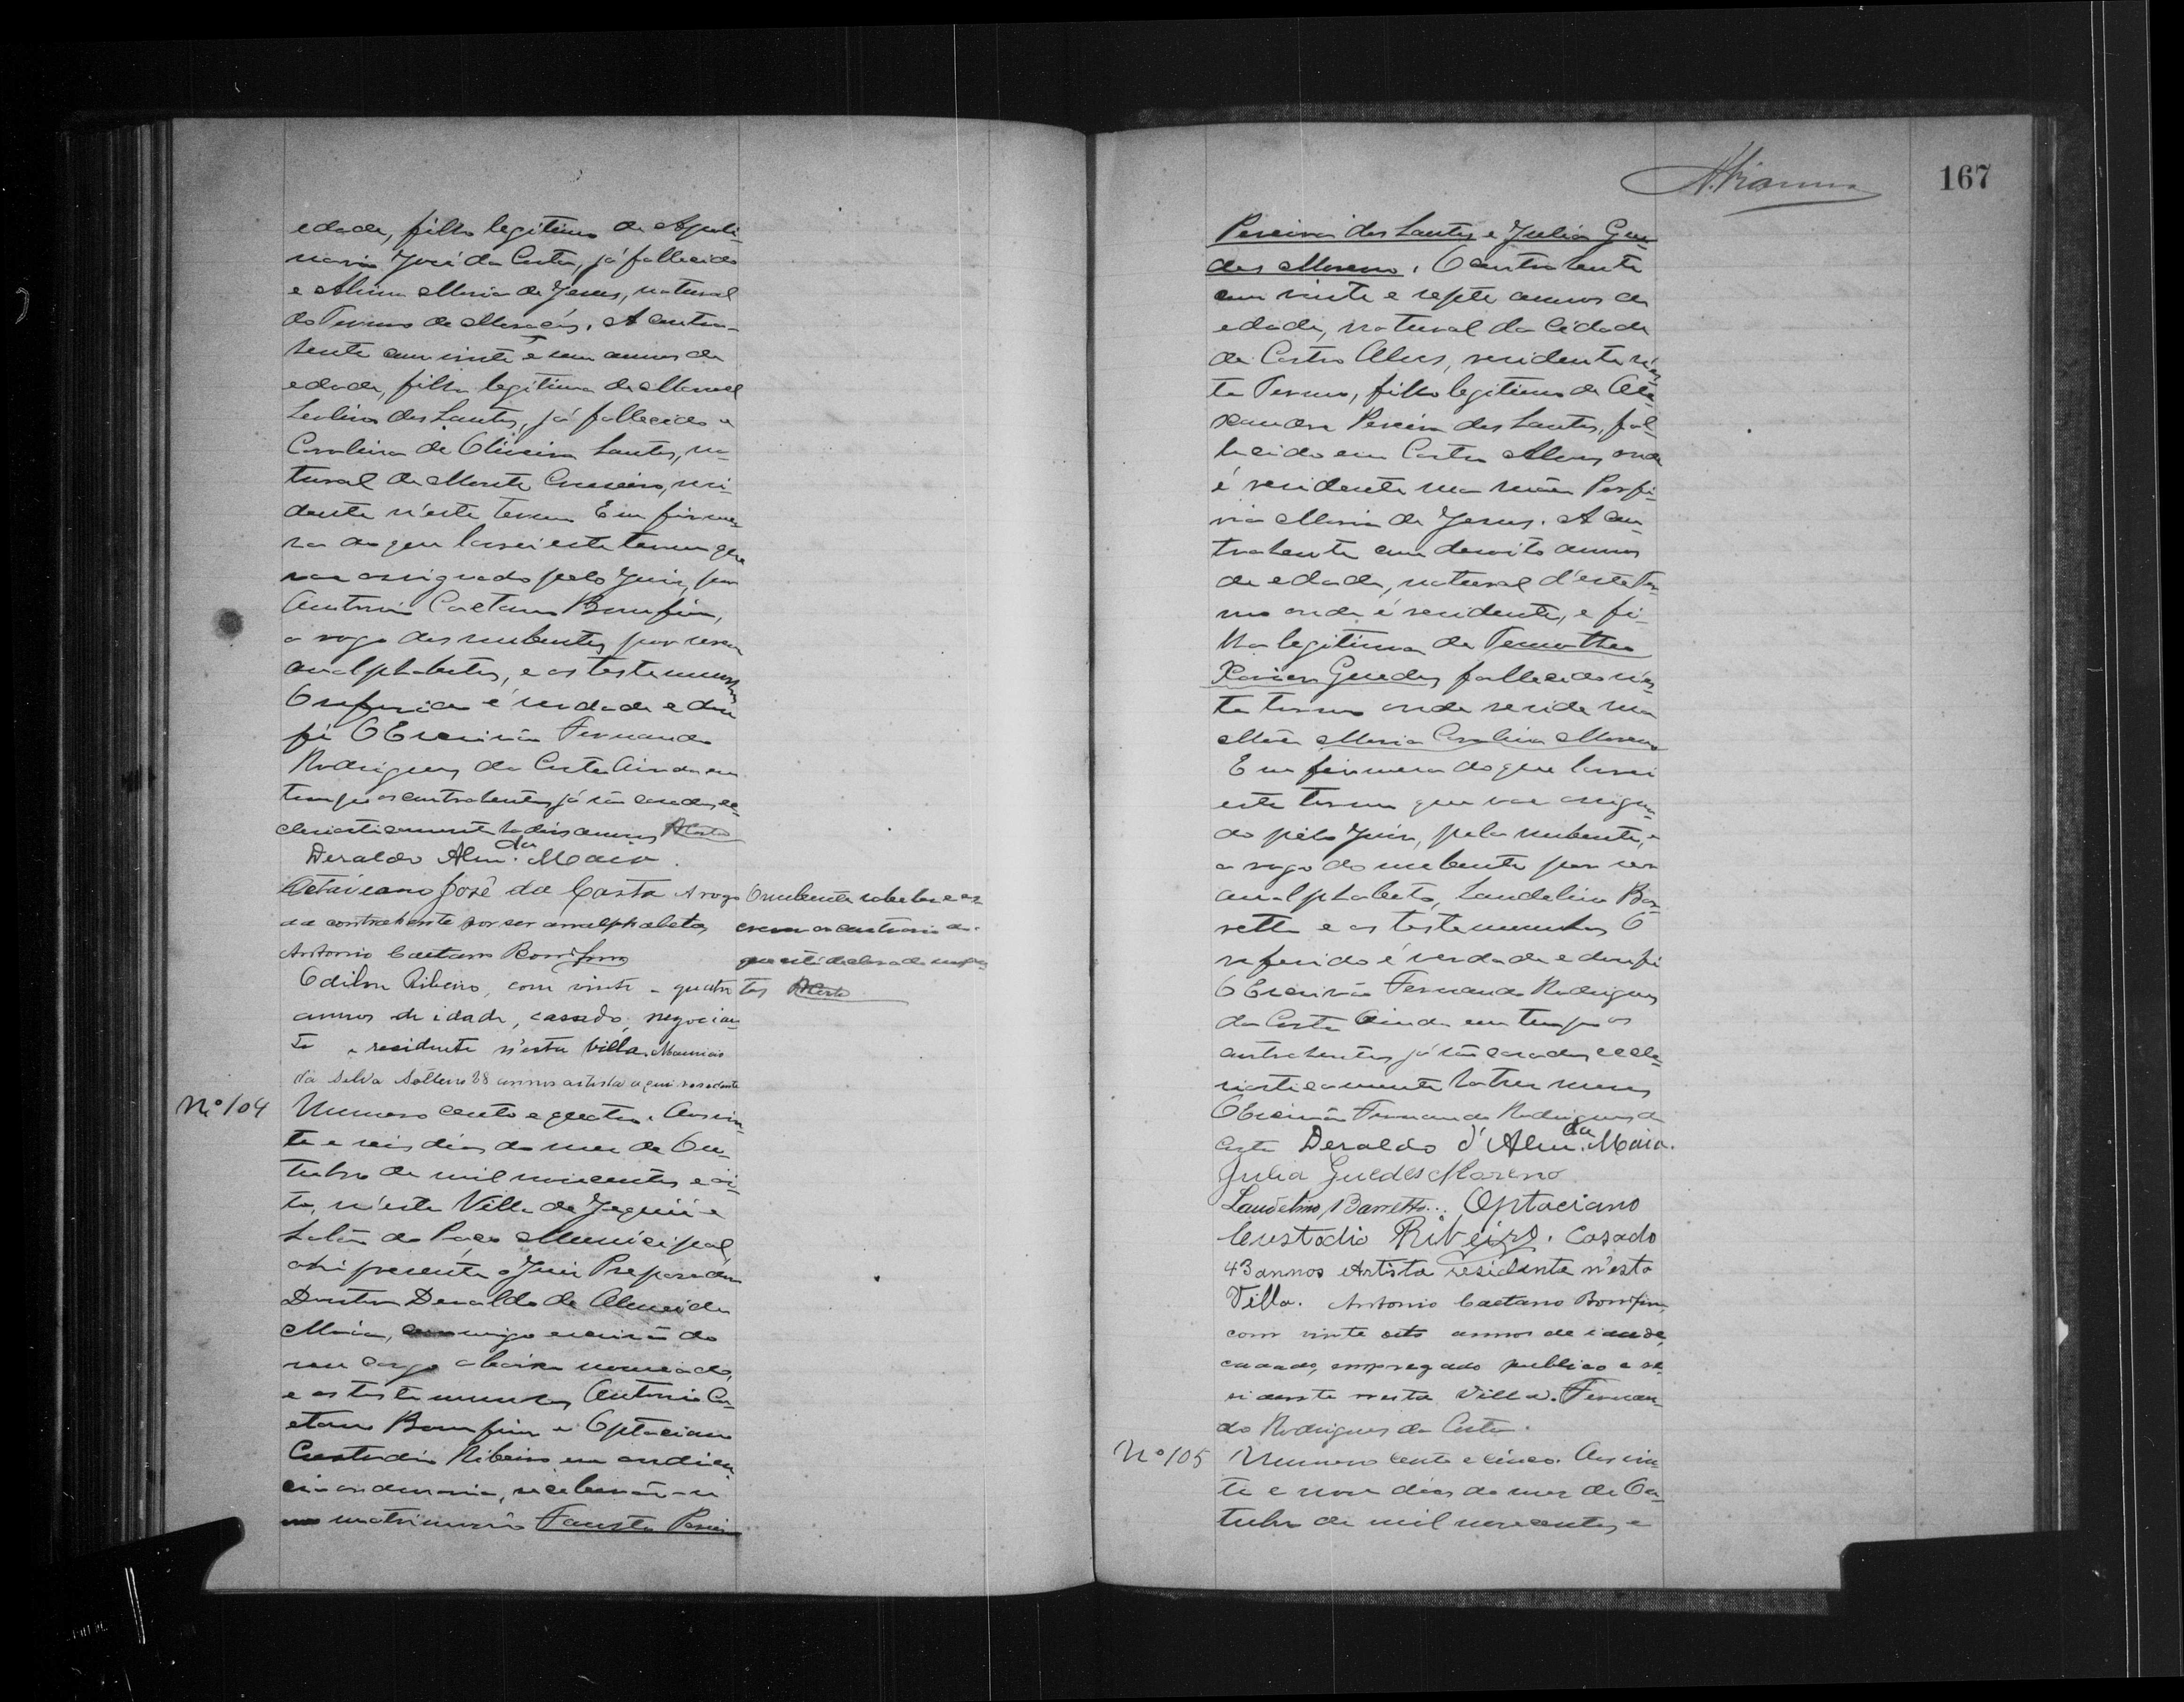 edade, filho legitimo de Apoli-
nario José da Costa, já fallecido
e Maria de Jesus, natural
do Termo de Maracás. A contra-
hente com vinte e um annos de
edade, filha legitima de Manoel
dos Santos, já fallecido e
de Oliveira Santos, na-
tural de Monte Cruzeiro, resi-
dente n'este termo Em firme-
za do que lavrei este termo que
vae assignado pelo Juiz, por
Antonio Caetano Bomfim,
a rogo dos nubentes por serem
analphabetos, e as testemunhas
O referido é verdade e dou
fé O Escrivão Fernando
Rodrigues da Costa Ainda em
tempo os contrahentes já são casados ec-
clesiasticamente ha dois annos RCosta
Deraldo Almda. Maia.
Octaviano José da Costa A rogo
da contrahente por ser analphabeta,
Antonio Caetano Bomfim
O nubente sabe ler e es-
crever ao contrario do
que está declarado
RCosta
Odilon Ribeiro, com vinte e quatro
annos de idade, cassado, negocian-
te e residente n'esta Villa. Mauricio
da Silva Solteiro 38 annos artista aqui residente
Nº 104
Numero cento e quatro. Aos vin-
te e seis dias do mez de Ou-
tubro de mil novecentos e oi-
to, n'esta Villa de Jequié e
Salão do Paço Municipal,
ahi presente o Juiz Preparador
Doutor Deraldo de Almeida
Maia, commigo escrivão do
seu cargo abaixo nomeado,
e as testemunhas Antonio Ca-
etano Bomfim e Optaciano
Custodio Ribeiro em audien-
cia ordinaria, receberão-se
em matrimonio Fausto Perei
167
Pereira dos Santos e Julia Gue-
des Moreno. O contrahente
com vinte e sete annos de
edade, natural da Cidade
de Castro Alves, residente n'es-
te Termo, filho legitimo de Ale-
xandre Pereira dos Santos, fal-
lecido em Castro Alves onde
é residente sua mãe Porfi-
ria Maria de Jesus. A con-
trahente com dezoito annos
de edade, natural d'este Ter-
mo onde é residente, e fi-
lha legitima de Timotheo
Xavier Guedes fallecido n'es-
te termo onde reside sua
Mãe Maria Carolina Moreno
Em firmeza do que lavrei
este termo que vae assigna-
do pelo Juiz, pela nubente, e
a rogo do nubente por ser
analphabeto, Laudelino Bar-
retto e as testemunhas O
referido é verdade e dou fé
O Escrivão Fernando Rodrigues
da Costa Ainda em tempo os
contrahentes já são casados eccle-
siasticamente ha tres mezes
O Escrivão Fernando Rodrigues da
Costa Deraldo d'Almda. Maia.
Julia Guedes Moreno
Laudelino Barretto. Optaciano
Custodio Ribeiro. Casado
43 annos Artista residente n'esta
Villa. Antonio Caetano Bomfim,
com vinte oito annos de idade,
casado, empregado publico e re-
sidente nesta Villa. Fernan-
do Rodrigues da Costa.
Nº 105
Numero cento e cinco. Aos vin-
te e nove dias do mez de Ou-
tubro de mil novecentos e